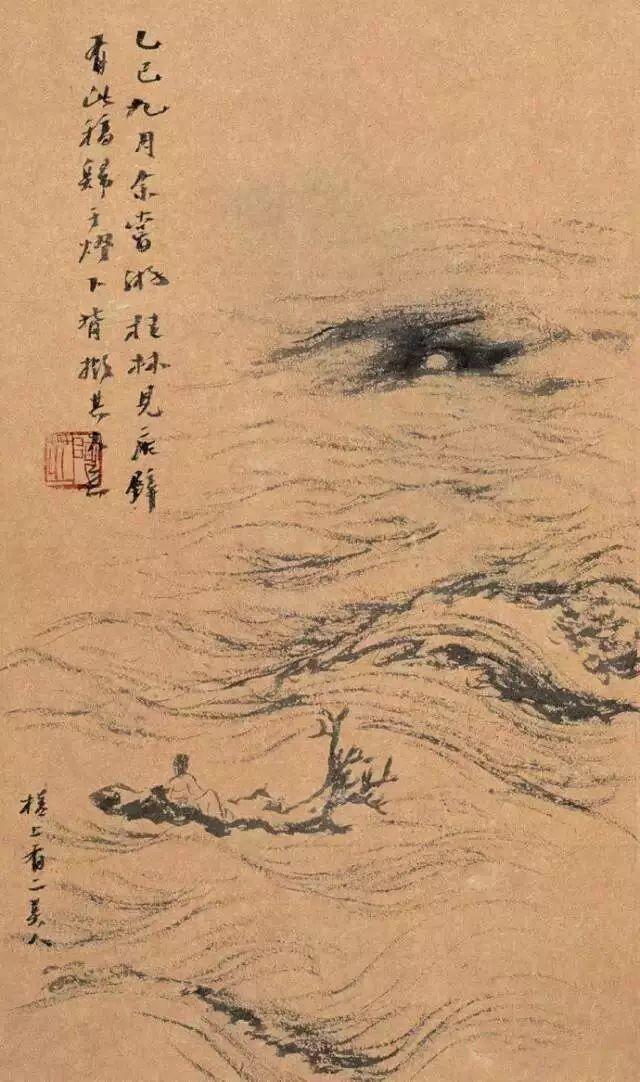 乙巳九月余嘗游桂林見壁
有此稿歸于燈下背擬其
槎上有二美人